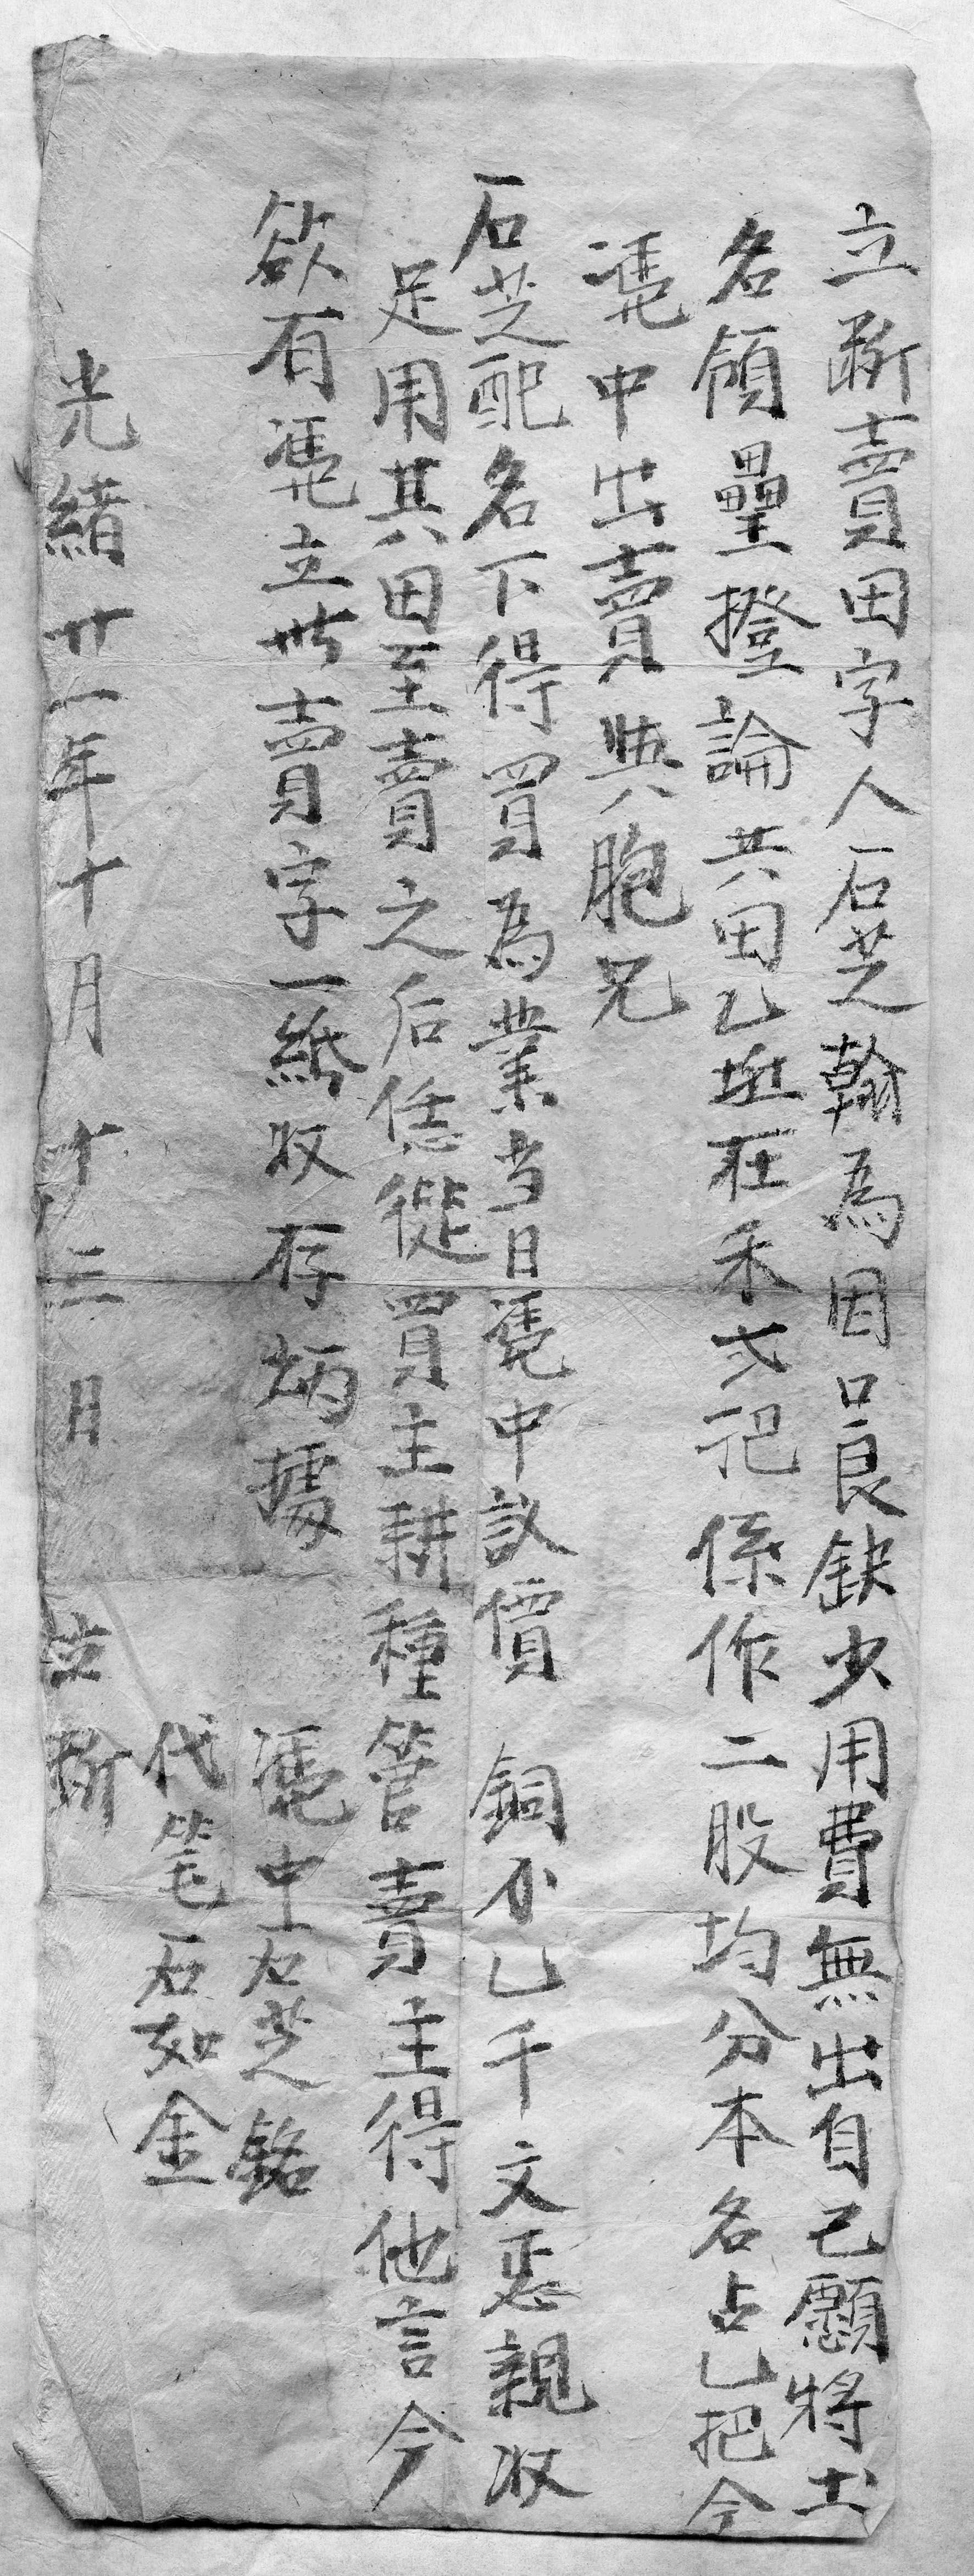 立斷賣田字人石芝翰為因口良缺少用費無出自己願將土
名領壘撜論共田乙坵在禾弍把係作二股均分本名占乙把今
凴中出賣與胞兄
石芝配名下得買為業当日凴中議價銅不乙千文恶親収
足用其田至賣之后恁從買主耕種管賣主得他言今
欲有凴立此賣字一紙収存炳據
凴中石芝銘
代笔石如金
光緒廿一年十月十三日 立斷